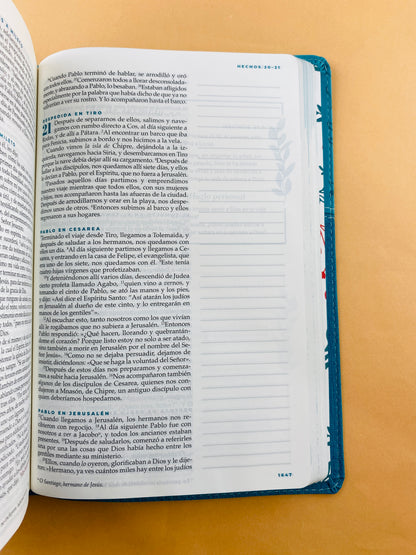 HECHOS 20–21
Cuando Pablo terminó de hablar, se arrodilló y oró
todos ellos. Comenzaron todos a llorar desconsolada-
y abrazando a Pablo, lo besaban. Estaban afligidos
especialmente por la palabra que había dicho de que ya no
verían a ver su rostro. Y lo acompañaron hasta el barco.
DESPEDIDA EN TIRO
21 Después de separarnos de ellos, salimos y nave-
gamos con rumbo directo a Cos, al día siguiente a
Rodas, y de allí a Pátara. Al encontrar un barco que iba
para Fenicia, subimos a bordo y nos hicimos a la vela.
Cuando vimos la isla de Chipre, dejándola a la iz-
quierda, navegamos hacia Siria, y desembarcamos en Tiro
porque la nave debía dejar allí su cargamento. Después de
hallar a los discípulos, nos quedamos allí siete días, y ellos
decían a Pablo, por el Espíritu, que no fuera a Jerusalén.
Pasados aquellos días partimos y emprendimos
nuestro viaje mientras que todos ellos, con sus mujeres
e hijos, nos acompañaron hasta las afueras de la ciudad.
Después de arrodillarnos y orar en la playa, nos despe-
dimos unos de otros. Entonces subimos al barco y ellos
regresaron a sus hogares.
PABLO EN CESAREA
Terminado el viaje desde Tiro, llegamos a Tolemaida, y
después de saludar a los hermanos, nos quedamos con
ellos un día. Al día siguiente partimos y llegamos a Ce-
sarea, y entrando en la casa de Felipe, el evangelista, que
era uno de los siete, nos quedamos con él. Este tenía
cuatro hijas vírgenes que profetizaban.
Y deteniéndonos allí varios días, descendió de Judea
cierto profeta llamado Agabo, quien vino a vernos, y
tomando el cinto de Pablo, se ató las manos y los pies,
y dijo: «Así dice el Espíritu Santo: “Así atarán los judíos
en Jerusalén al dueño de este cinto, y lo entregarán en
manos de los gentiles”».
Al escuchar esto, tanto nosotros como los que vivían
allí le rogábamos que no subiera a Jerusalén. Entonces
Pablo respondió: «¿Qué hacen, llorando y quebrantán-
dome el corazón? Porque listo estoy no solo a ser atado,
sino también a morir en Jerusalén por el nombre del Se-
ñor Jesús». Como no se dejaba persuadir, dejamos de
insistir, diciéndonos: «Que se haga la voluntad del Señor».
Después de estos días nos preparamos y comenza-
mos a subir hacia Jerusalén. Nos acompañaron también
algunos de los discípulos de Cesarea, quienes nos con-
dujeron a Mnasón, de Chipre, un antiguo discípulo con
quien deberíamos hospedarnos.
PABLO EN JERUSALÉN
Cuando llegamos a Jerusalén, los hermanos nos re-
cibieron con regocijo. Al día siguiente Pablo fue con
nosotros a ver a Jacobo*, y todos los ancianos estaban
presentes. Después de saludarlos, comenzó a referirles
una por una las cosas que Dios había hecho entre los
gentiles mediante su ministerio.
Ellos, cuando lo oyeron, glorificaban a Dios y le dije-
ron: «Hermano, ya ves cuántos miles hay entre los judíos
O Santiago, hermano de Jesús.
1647